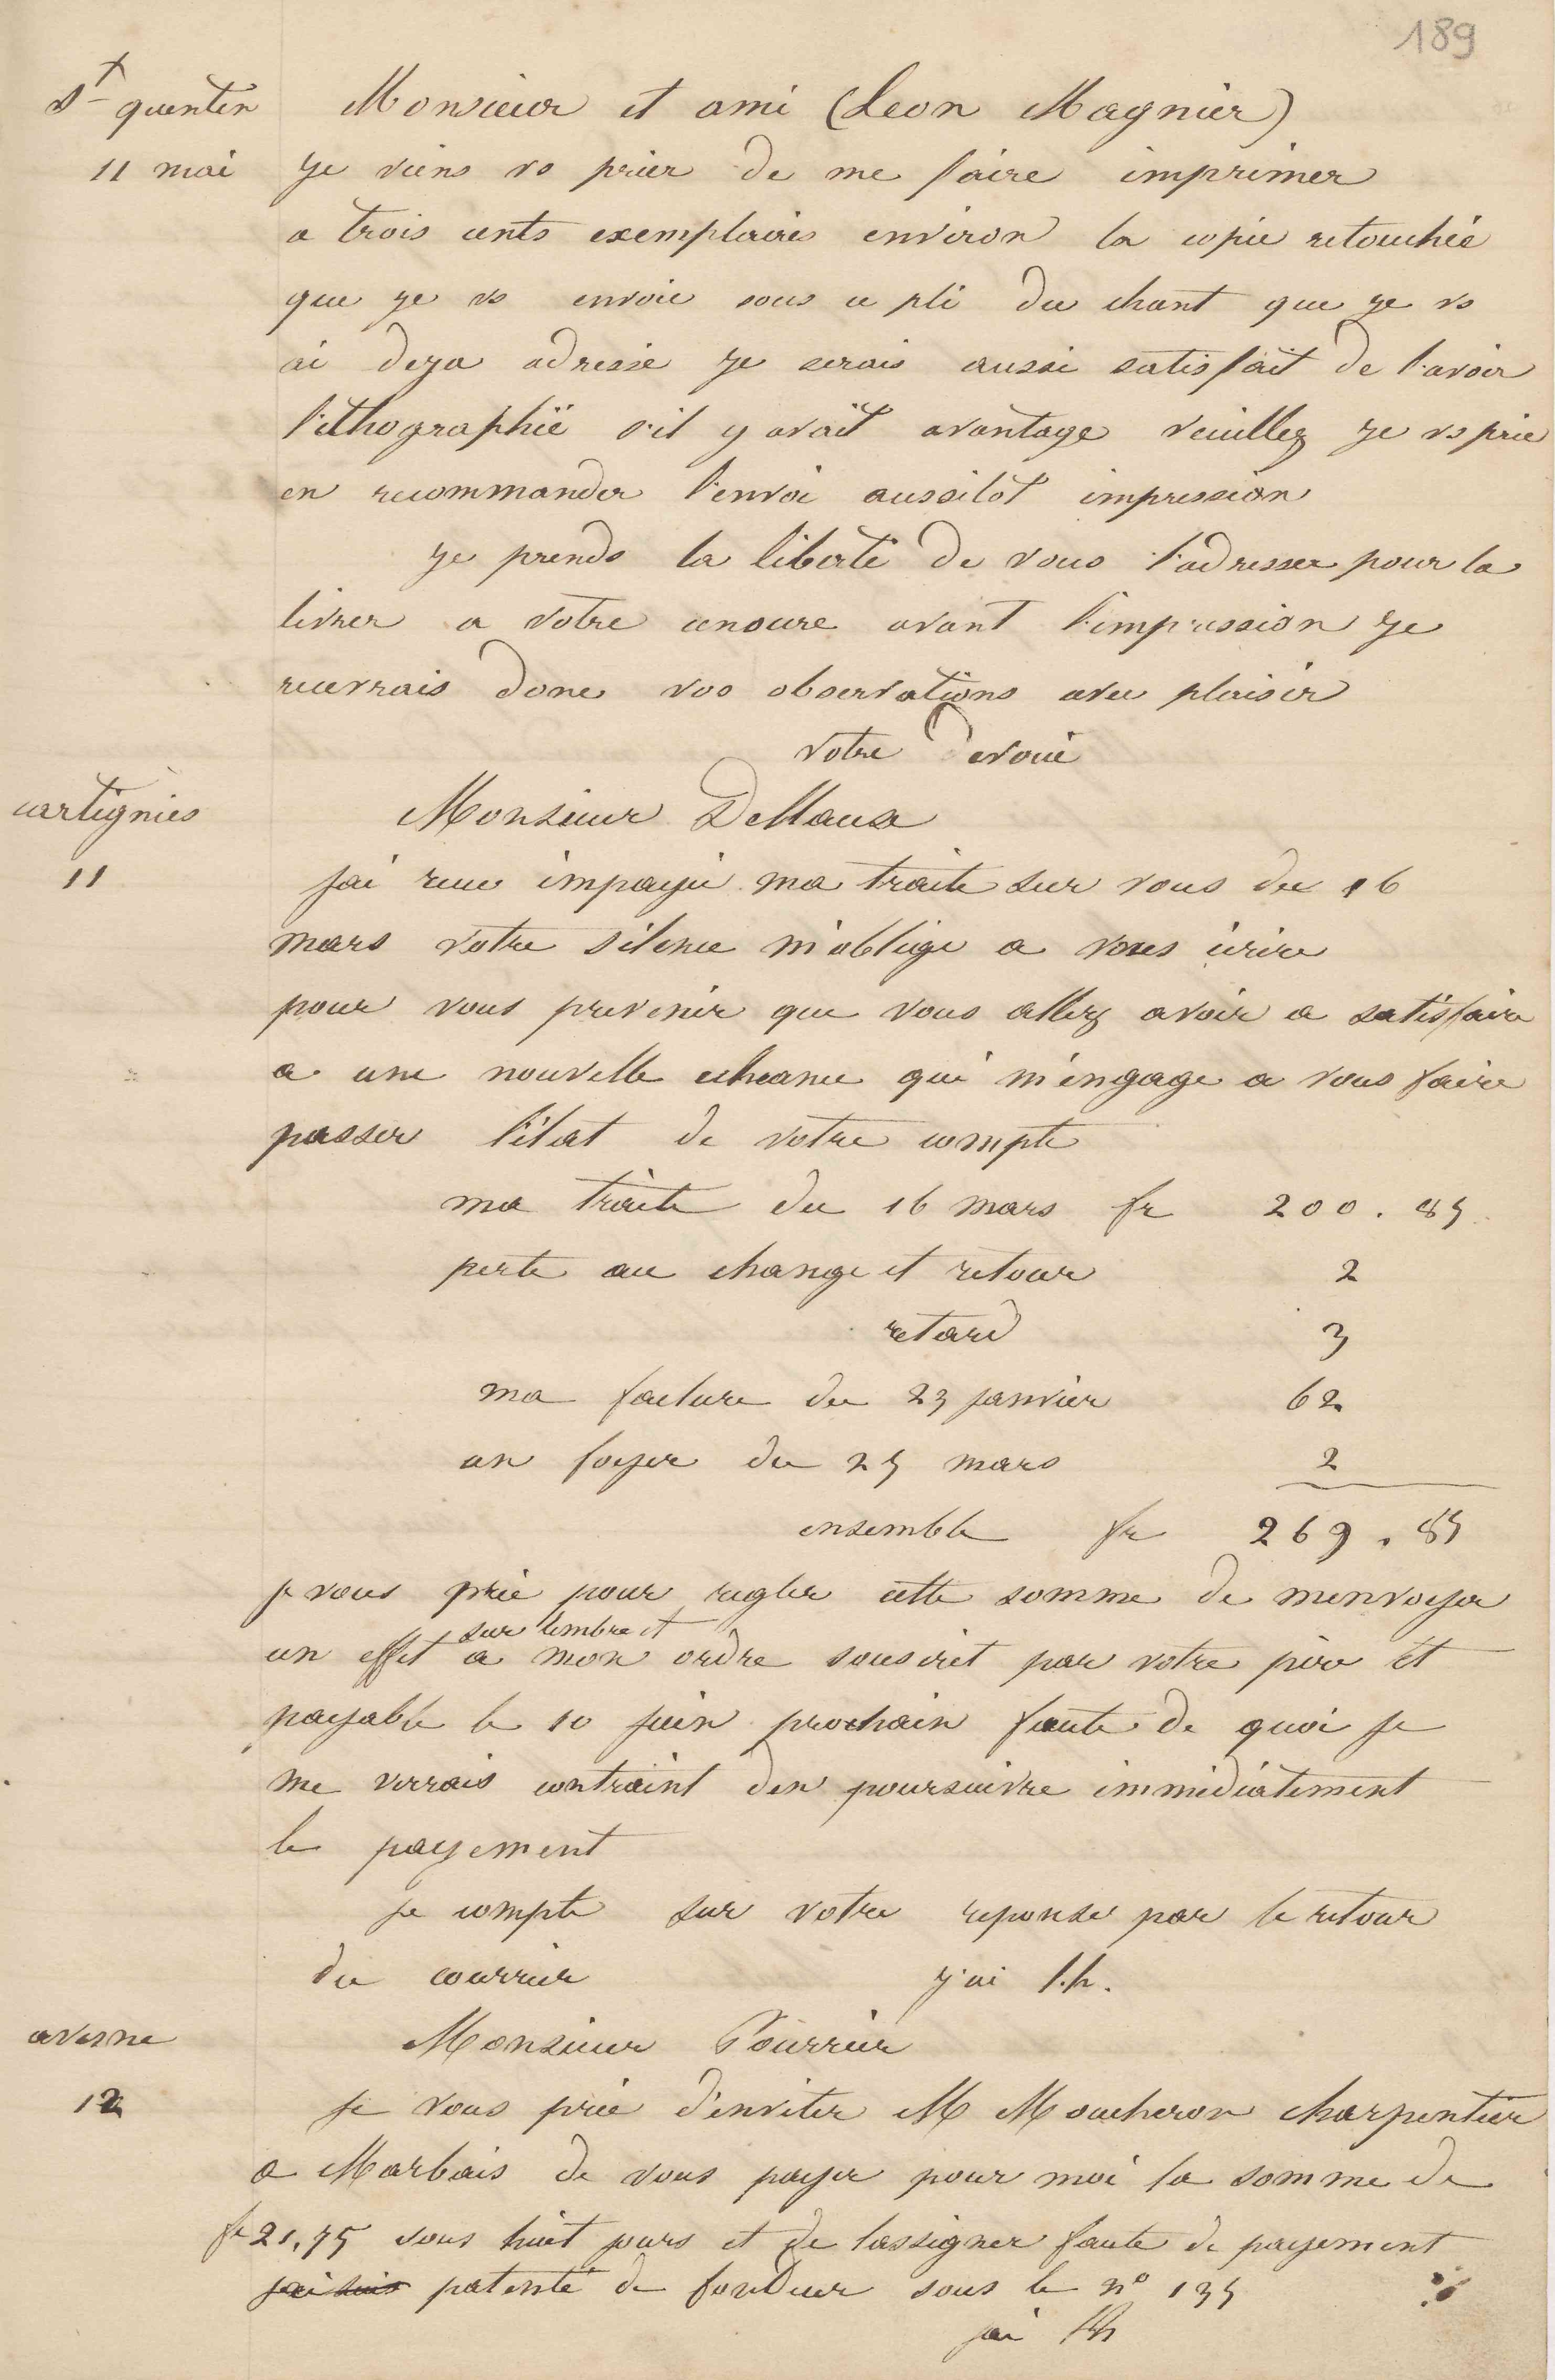 189
St quentin Monsieur et ami (Leon Magnier)
11 mai je viens vs prier de me faire imprimer
a trois cents exemplaires environ la copie retouchée
que je vs envoie sous ce pli du chant que je vs
ai deja adressé je serais aussi satisfait de l'avoir
lithographié s'il y avait avantage veuillez je vs prie
en recommander l'envoi aussitôt impression
je prends la liberté de vous l'adresser pour la
livrer a votre censure avant l'impression je
recevrais donc vos observations avec plaisir
votre devoué
cartignies Monsieur Dellaux
11 j'ai reçu impayée ma traite sur vous du 16
mars votre silence m'oblige a vous écrire
pour vous prevenir que vous allez avoir a satisfaire
a une nouvelle echeance qui m'engage a vous faire
passer l'état de votre compte
ma traite du 16 mars fr 200 . 85
perte au change et retour 2
retard 3
ma facture du 23 janvier 62
un foyer du 25 mars 2
ensemble fr 269 . 85
je vous prie pour regler cette somme de menvoyer
sur timbre et
un effet a mon ordre souscrit par votre père et
payable le 10 juin prochain faute de quoi je
me verrais contraint den poursuivre immediatement
le payement
je compte sur votre reponse par le retour
du courrier j'ai l.h.
avesne Monsieur Pourrier
12 je vous prie d'inviter M Moucheron charpentier
a Marbais de vous payer pour moi la somme de
fr 21,75 sous huit jours et de lassigner faute de payement
jai suis patenté de fondeur sous le n° 135
jai lh